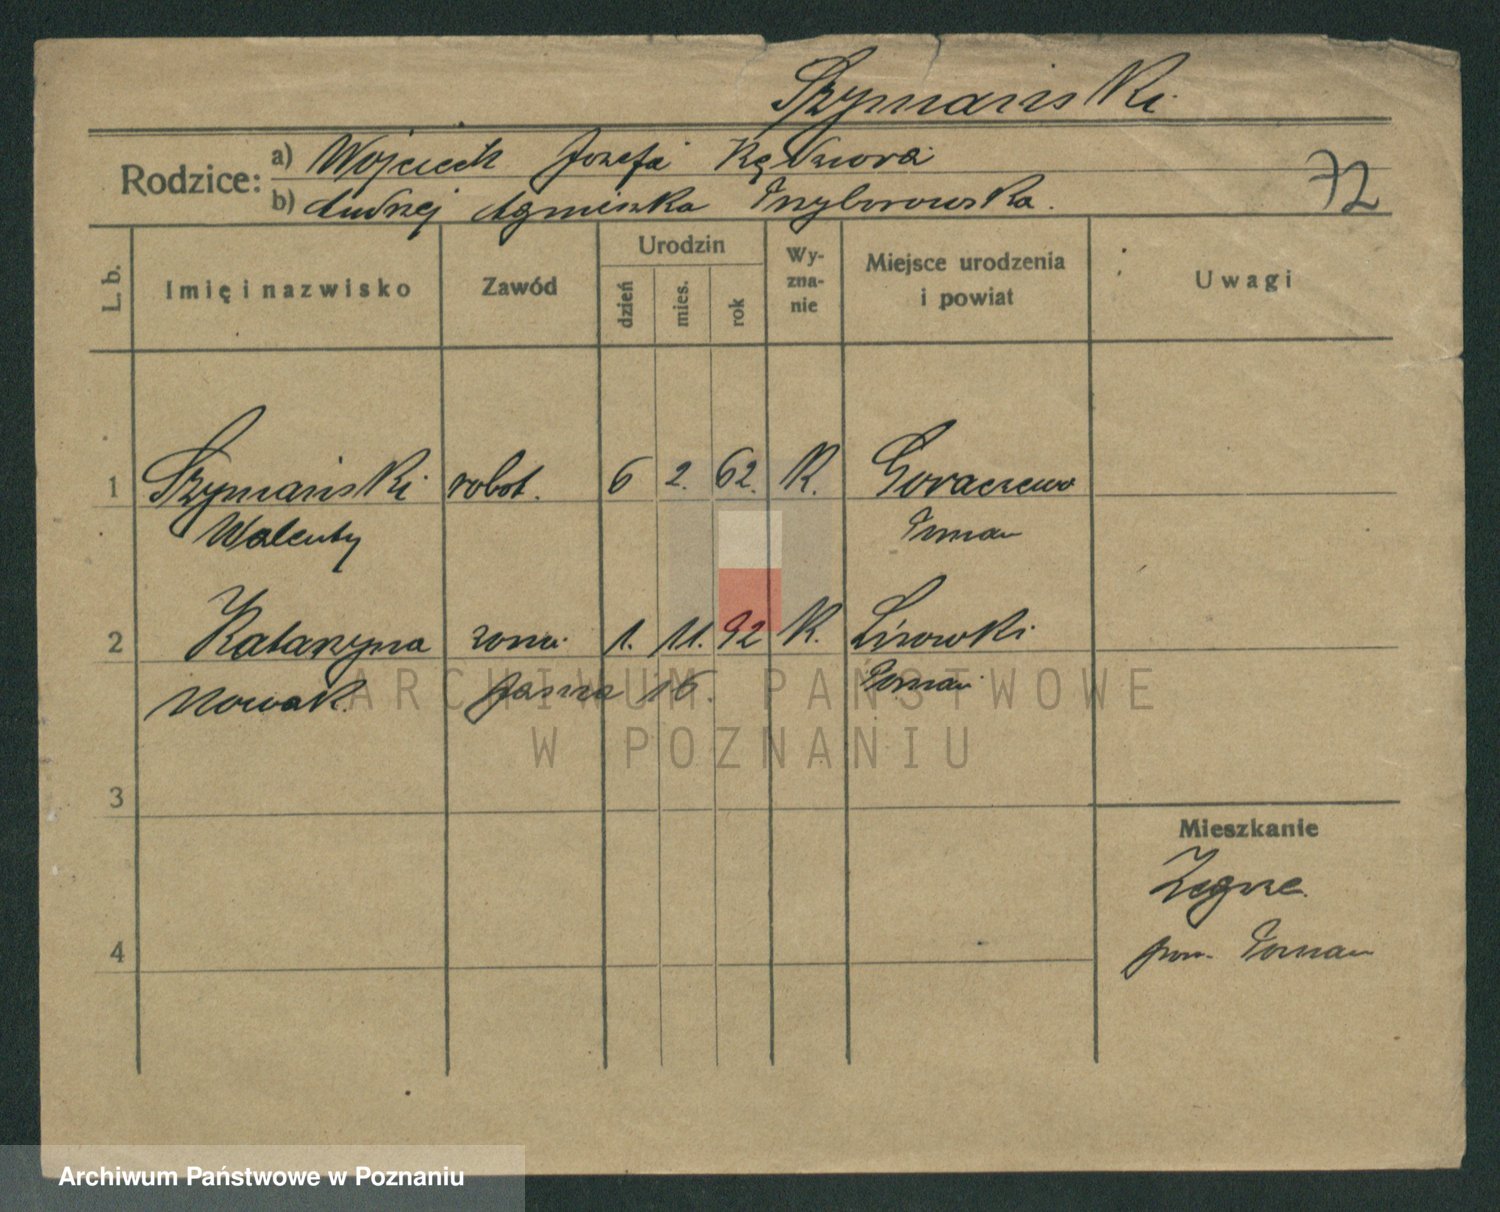 Szymański
Rodzice: a) Wojciech Józefa Kędziora
b) Andrzej Agnieszka Przyborowska.
72
L. b. Imię i nazwisko Zawód Urodzin dzień mies. rok Wy-zna-nie Miejsce urodzenia i powiat Uwagi
1 Szymański robot. 6 2. 62. K.
Walenty Poznań
2 Katarzyna żona 1. 11. 92 K.
Nowak. Jasna 16. Poznań
3
Mieszkanie
Zegrze.
4 pow. Poznań
ARCHIWUM PAŃSTWOWE
W POZNANIU
Archiwum Państwowe w Poznaniu